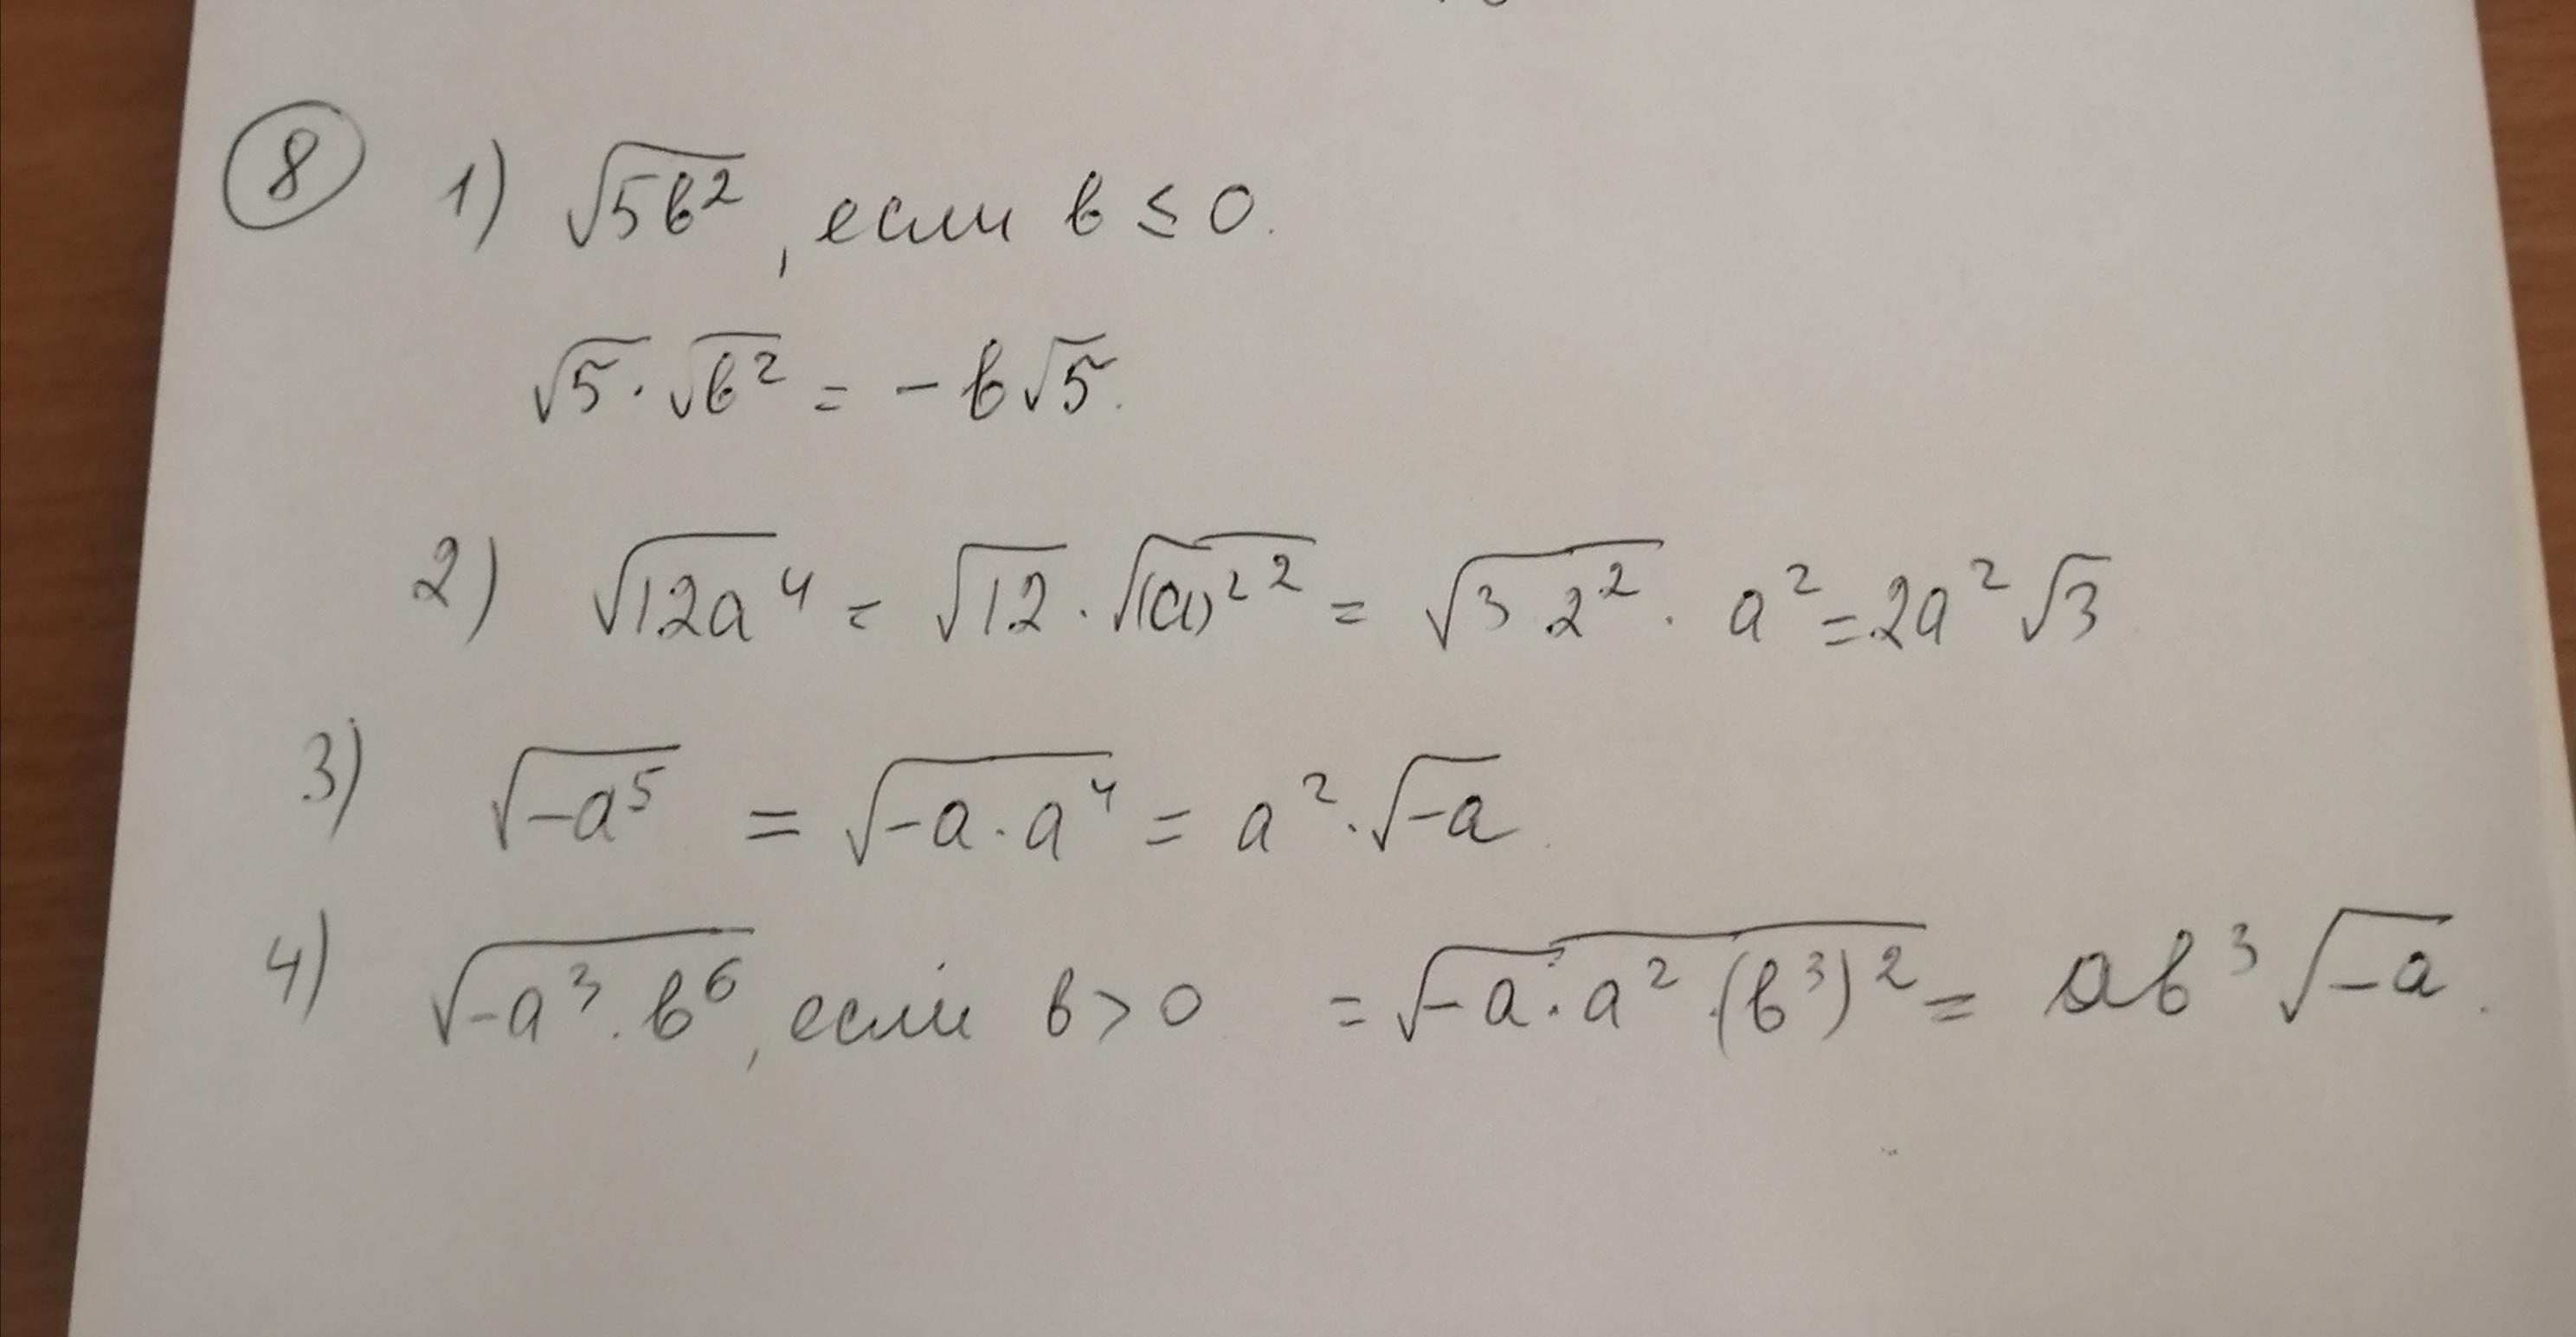 8 1) √5b², если b ≤ 0.
√5 · √b² = - b√5.
2) √12a⁴ = √12 · √(a)²² = √3 2² · a² = 2a²√3
3) √-a⁵ = √-a · a⁴ = a² · √-a.
4) √-a³ · b⁶, если b > 0 = √-a · a² · (b³)² = ab³√-a.